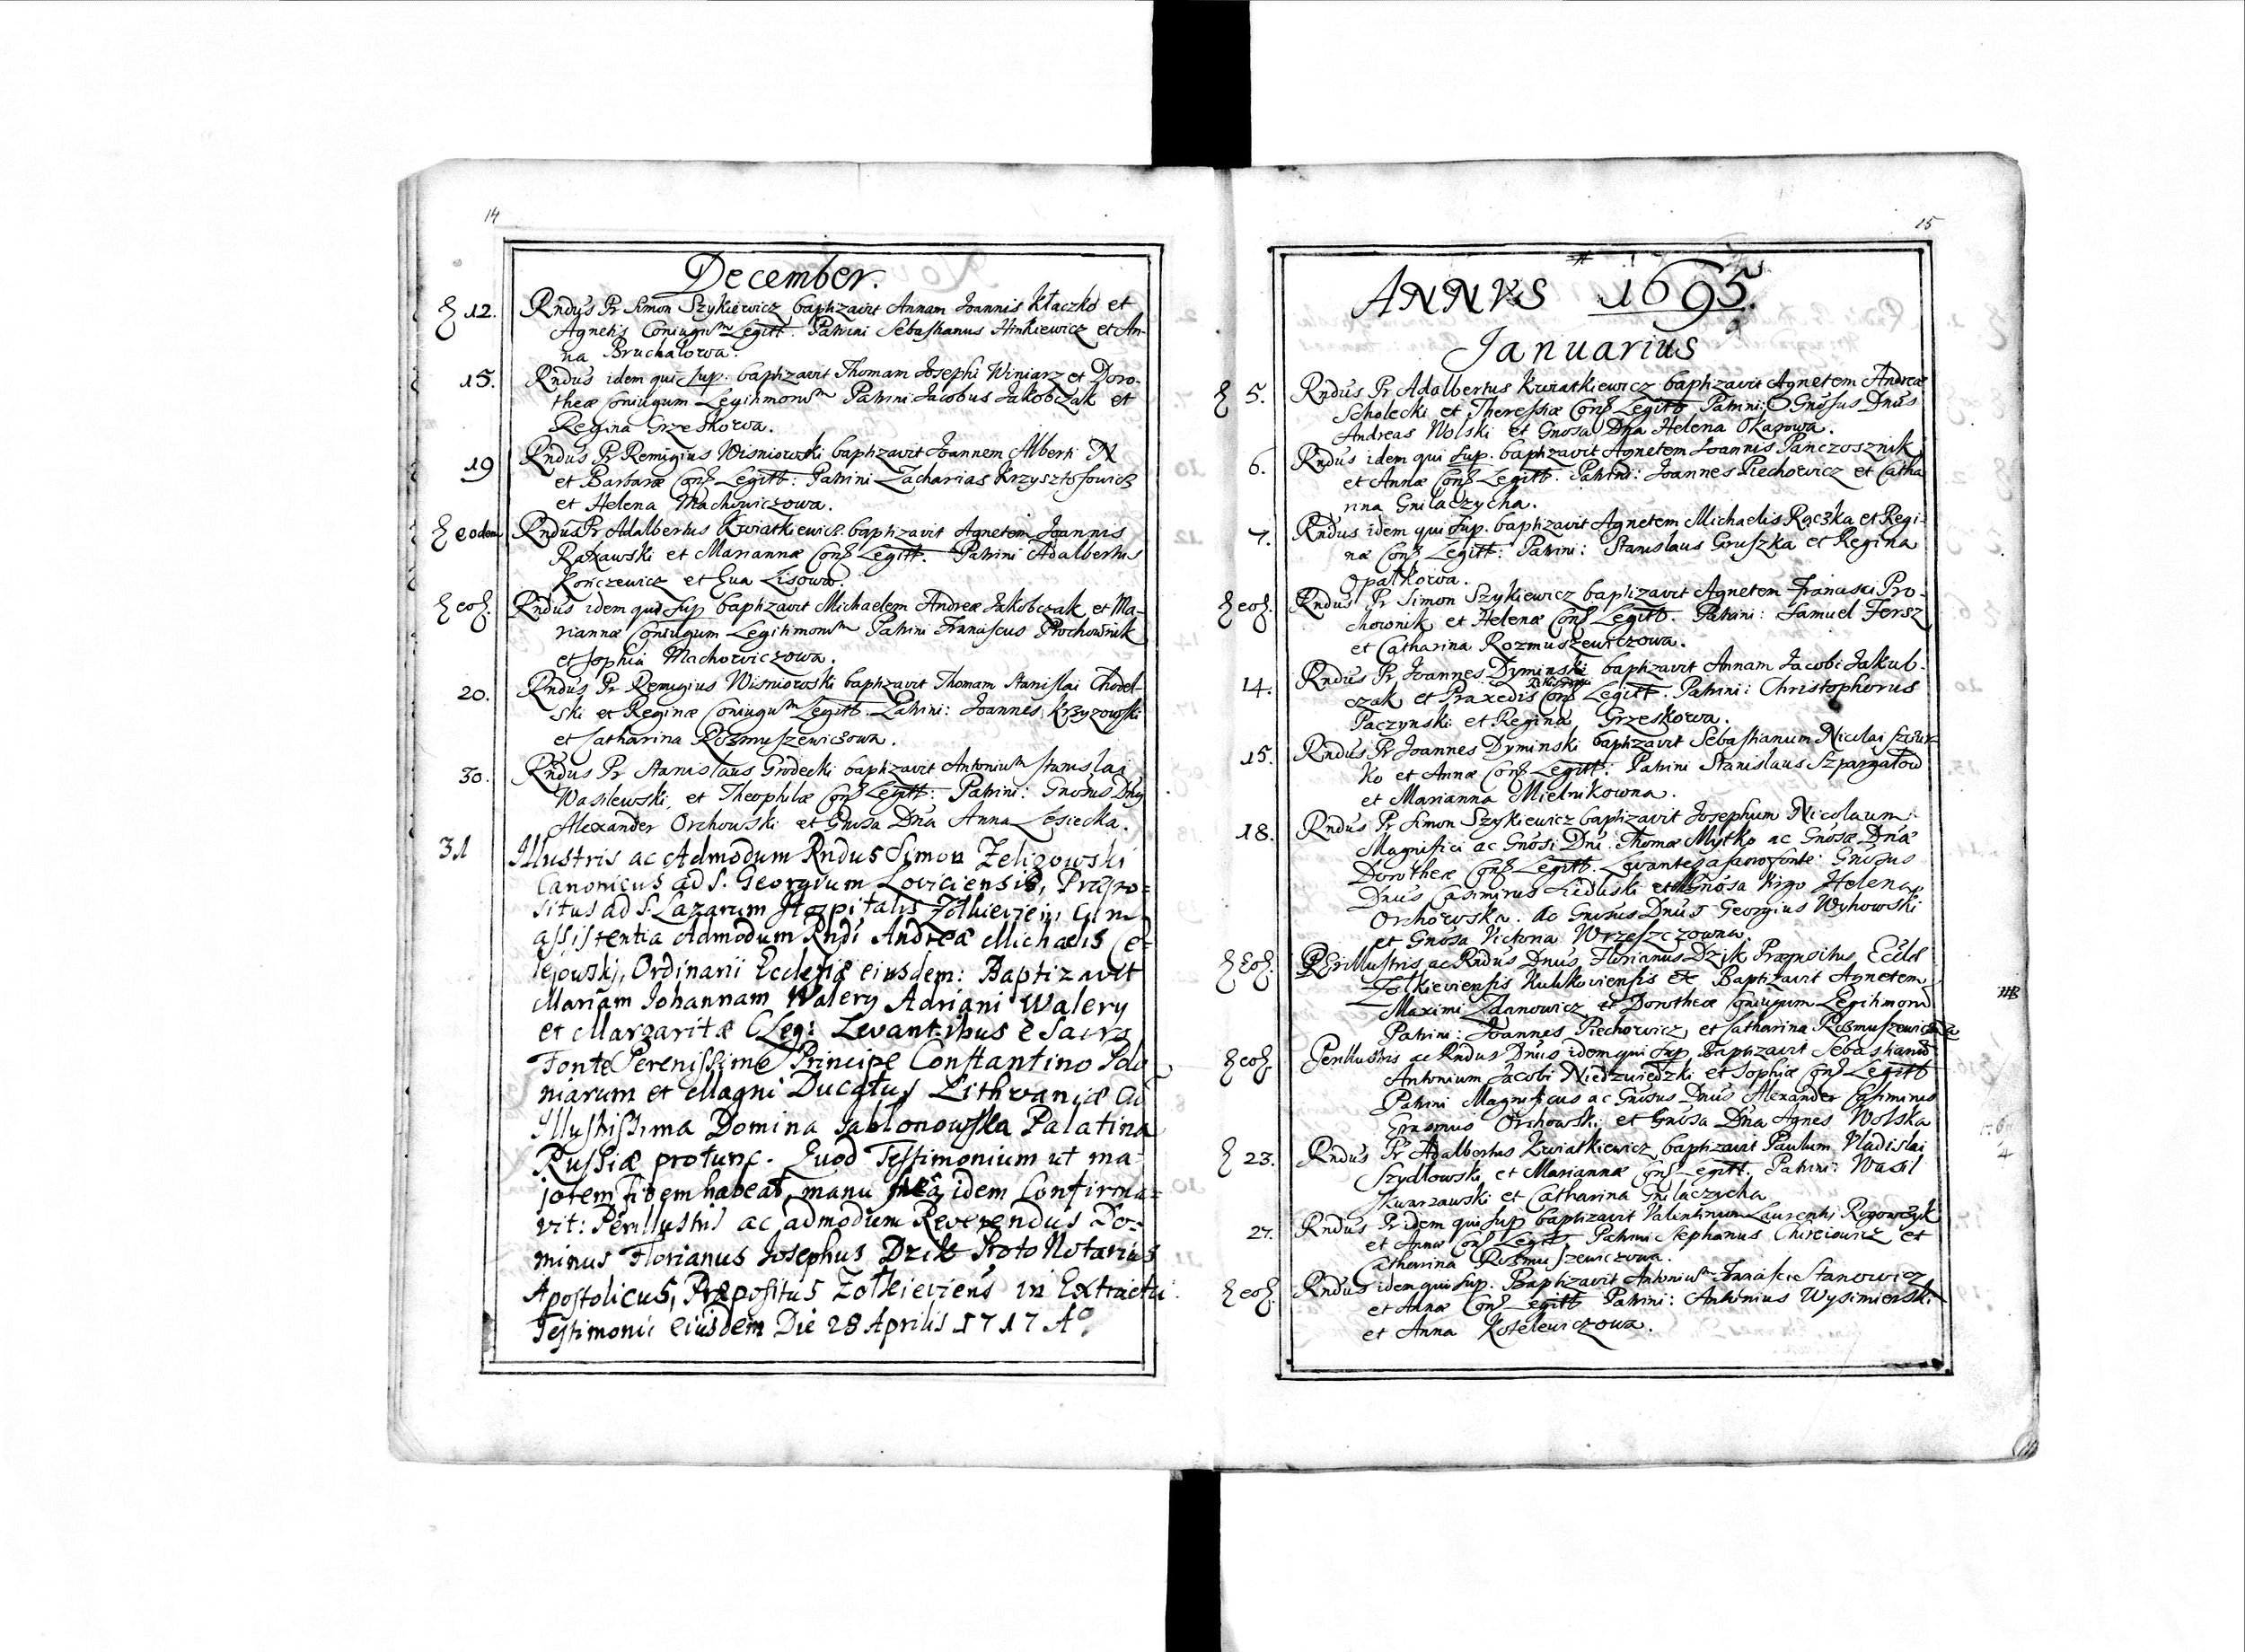 14
December.
12. Rndus Pr Simon Szykiewicz baptizavit Annam Joannis Kłaczko et
Agnetis Coniugum Legitt. Patrini Sebastianus Hinkiewicz et An-
na Bruchalowa.
15. Rndus idem qui sup. baptizavit Thomam Josephi Winiarz et Doro-
theæ Coniugum Legitimorum Patrini Jacobus Jakobczak et
Regina Grzeskowa.
19 Rndus Pr Remigius Wisniowski baptizavit Joannem Alberti N
et Barbaræ Conj Legitt: Patrini Zacharias Krzysztofowicz
et Helena Machowiczowa.
eodem Rndus Pr Adalbertus Kwiatkiewicz baptizavit Agnetem Joannis
Razawski et Mariannæ Conj Legitt. Patrini Adalbertus
Konczewicz et Eva Lisowa.
eod. Rndus idem qui sup baptizavit Michaelem Andreæ Jakobczak et Ma-
riannæ Coniugum Legitimorum Patrini Franciscus Prochownik
et Sophia Machowiczowa.
20. Rndus Pr Remigius Wisniowski baptizavit Thomam Stanislai Chodel-
ski et Reginæ Coniugum Legitt. Patrini: Joannes Krzyzowski
et Catharina Rozmuszewiczowa.
30. Rndus Pr Stanislaus Grodecki baptizavit Antonium Stanislai
Wasilewski, et Theophilæ Conj Legitt: Patrini: Gnosus Dnus
Alexander Orchowski et Gnosa Dna Anna Lesiecka.
31 Illustris ac Admodum Rndus Simon Zeligowski
Canonicus ad S. Georgium Loviciensis, Præpo=
situs ad S. Lazarum Hospitalis Zolkievien, cum
assistentia Admodum Rndi Andreæ Michaelis Ce-
lejowski, Ordinarii Ecclesiæ eiusdem: Baptizavit
Mariam Johannam Walery Adriani Walery
et Margaritæ C Leg: Levantibus e Sacro
Fonte Serenissimo Principe Constantino Polo
niarum et Magni Ducatus Lithvaniæ Cu
Illustrissima Domina Jablonowska Palatina
Russiæ protunc. Quod Testimonium ut ma-
jorem fidem habeat, manu sua idem Confirma=
vit: Perillustris ac admodum Reverendus Do-
minus Florianus Josephus Dzik Proto Notarius
Apostolicus, Præpositus Zolkieviens in Extractu
Testimonii eiusdem Die 28 Aprilis 1717 Aº.
15
ANNVS 1695.
Januarius
5. Rndus Pr Adalbertus Kwiatkiewicz baptizavit Agnetem Andreæ
Scholecki et Theressiæ Conj Legitt Patrini: Gnosus Dnus
Andreas Wolski et Gnosa Dna Helena Okarowa.
6. Rndus idem qui sup. baptizavit Agnetem Joannis Panczosznik
et Annæ Conj Legitt. Patrini: Joannes Piechowicz et Catha
rina Gnilaczycha.
7. Rndus idem qui sup. baptizavit Agnetem Michaelis Rączka et Regi-
næ Conj Legitt: Patrini: Stanislaus Gruszka et Regina
Opatkowa.
eod. Rndus Pr Simon Szykiewicz baptizavit Agnetem Francisci Pro-
chownik et Helenæ Conj Legitt. Patrini: Samuel Fersz
et Catharina Rozmuszewiczowa.
14. Rndus Pr Joannes Dyminski baptizavit Annam Jacobi Jakub-
czak et Praxedis Conj Legitt. Patrini: Christophorus
Paczynski et Regina Grzeskowa.
15. Rndus Pr Joannes Dyminski baptizavit Sebastianum Nicolai
ko et Annæ Conj Legitt: Patrini Stanislaus Szpargałow
et Marianna Mielnikowna.
18. Rndus Pr Simon Szykiewicz baptizavit Josephum Nicolaum
Magnifici ac Gnosi Dni Thomæ Mytko ac Gnosæ Dnæ
Dorotheæ Conj Legitt. Levantes a sacro fonte: Gnosus
Dnus Casimirus Liduski et Gnosa Virgo Helena
Orchowska. Ac Gnosus Dnus Georgius Wyhowski
et Gnosa Victoria Wrzeszczowna.
Eod. Perillustris ac Rndus Dnus Florianus Dzik Præpositus Eccl
Zolkieviensis Kulikoviensis etc Baptizavit Agnetem
Maximi Zdanowicz et Dorotheæ Coniugum Legitimoru
Patrini: Joannes Piechowicz et Catharina Rozmuszewiczowa
eod. Perillustris ac Rndus Dnus idem qui sup Baptizavit Sebastianu
Antonium Jacobi Niedzwiedzki et Sophiæ Conj Legitt
Patrini Magnificus ac Gnosus Dnus Alexander Casimirus
Erasmus Orchowski et Gnosa Dna Agnes Wolska
23. Rndus Pr Adalbertus Kwiatkiewicz baptizavit Paulum Vladislai
Szydlowski et Mariannæ Conj Legitt. Patrini: Wasil
Skwarzawski et Catharina Gnilaczycha
27. Rndus Pr idem qui sup baptizavit Valentinum Laurentij Rogowczyk
et Annæ Conj Legitt, Patrini Stephanus Chirciowicz et
Catharina Rozmuszewiczowa.
eod. Rndus idem qui sup. Baptizavit Antonium Stanowicz
et Annæ Conj Legitt Patrini: Antonius Wysimierski
et Anna Kotelewiczowa.